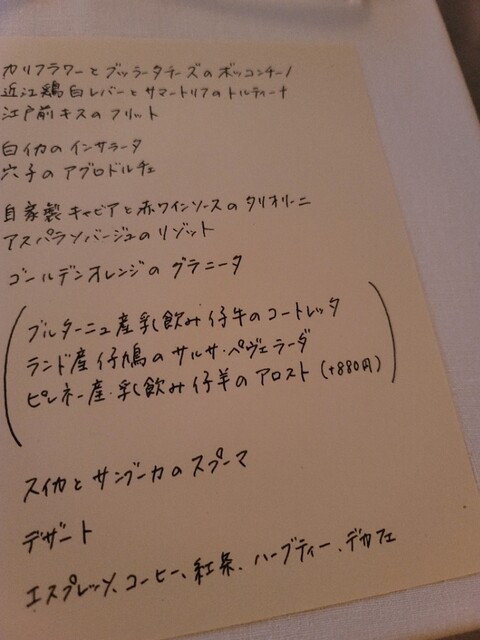 カリフラワーとブッラータチーズのボッコンチーノ
近江鶏白レバーとサマートリュフのトルティーナ
江戸前キスのフリット
白イカのインサラータ
穴子のアグロドルチェ
自家製キャビアと赤ワインソースのタリオリーニ
アスパラソバージュのリゾット
ゴールデンオレンジのグラニータ
ブルターニュ産乳飲み仔牛のコートレッタ
ランド産仔鳩のサルサ・ペヴェラーダ
ピレネー産・乳飲み仔羊のアロスト (+880円)
スイカとサンブーカのスプーマ
デザート
エスプレッソ、コーヒー、紅茶、ハーブティー、デカフェ